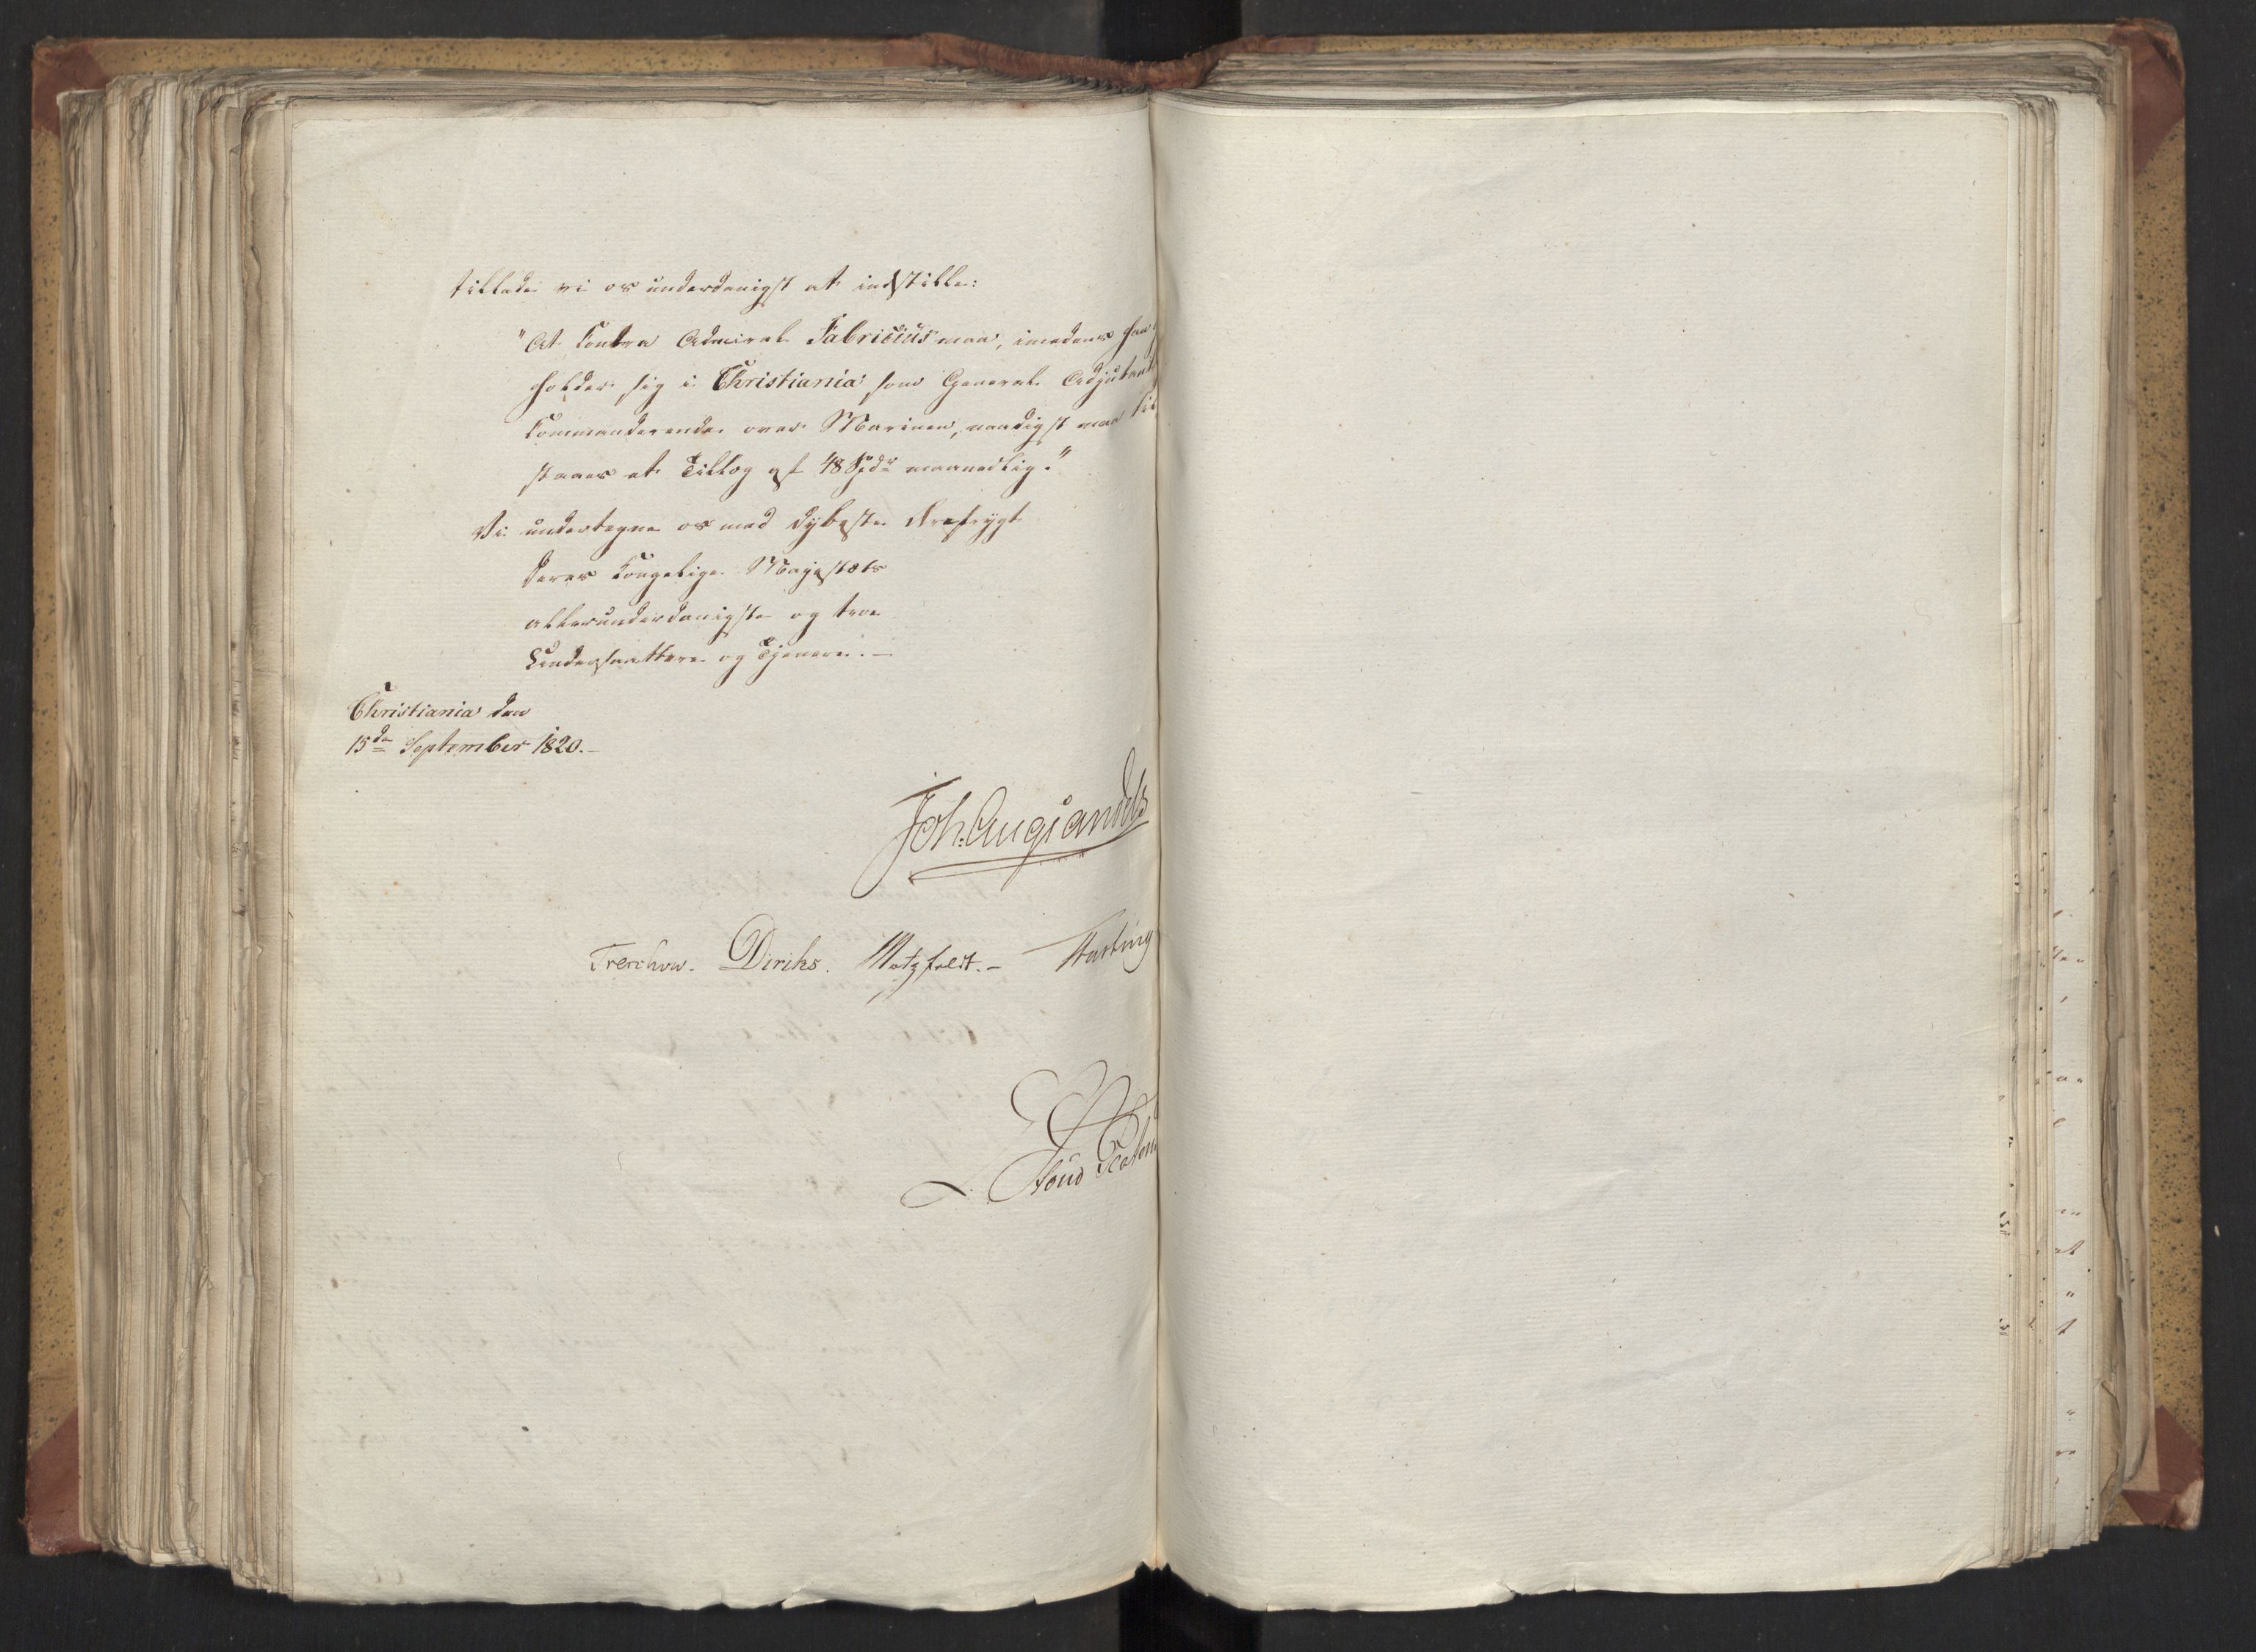 tillade vi os underdanigst at indstille:
"At Contra Admiral Fabricius maa, imedens han
holder sig i Christiania som General Adjutant
Commanderende over Marinen, naadigst maa til
staaes et Tillæg af 48 Spdr maanedlig."
Vi undertegne os med dybeste Ærefrygt
Deres Kongelige Majestæts
allerunderdanigste og troe
Undersaatter og Tjenere. —
Christiania den
15de September 1820. —
Joh: Aug: Sandels
Treschow. Diriks. Motzfeldt. — Fasting